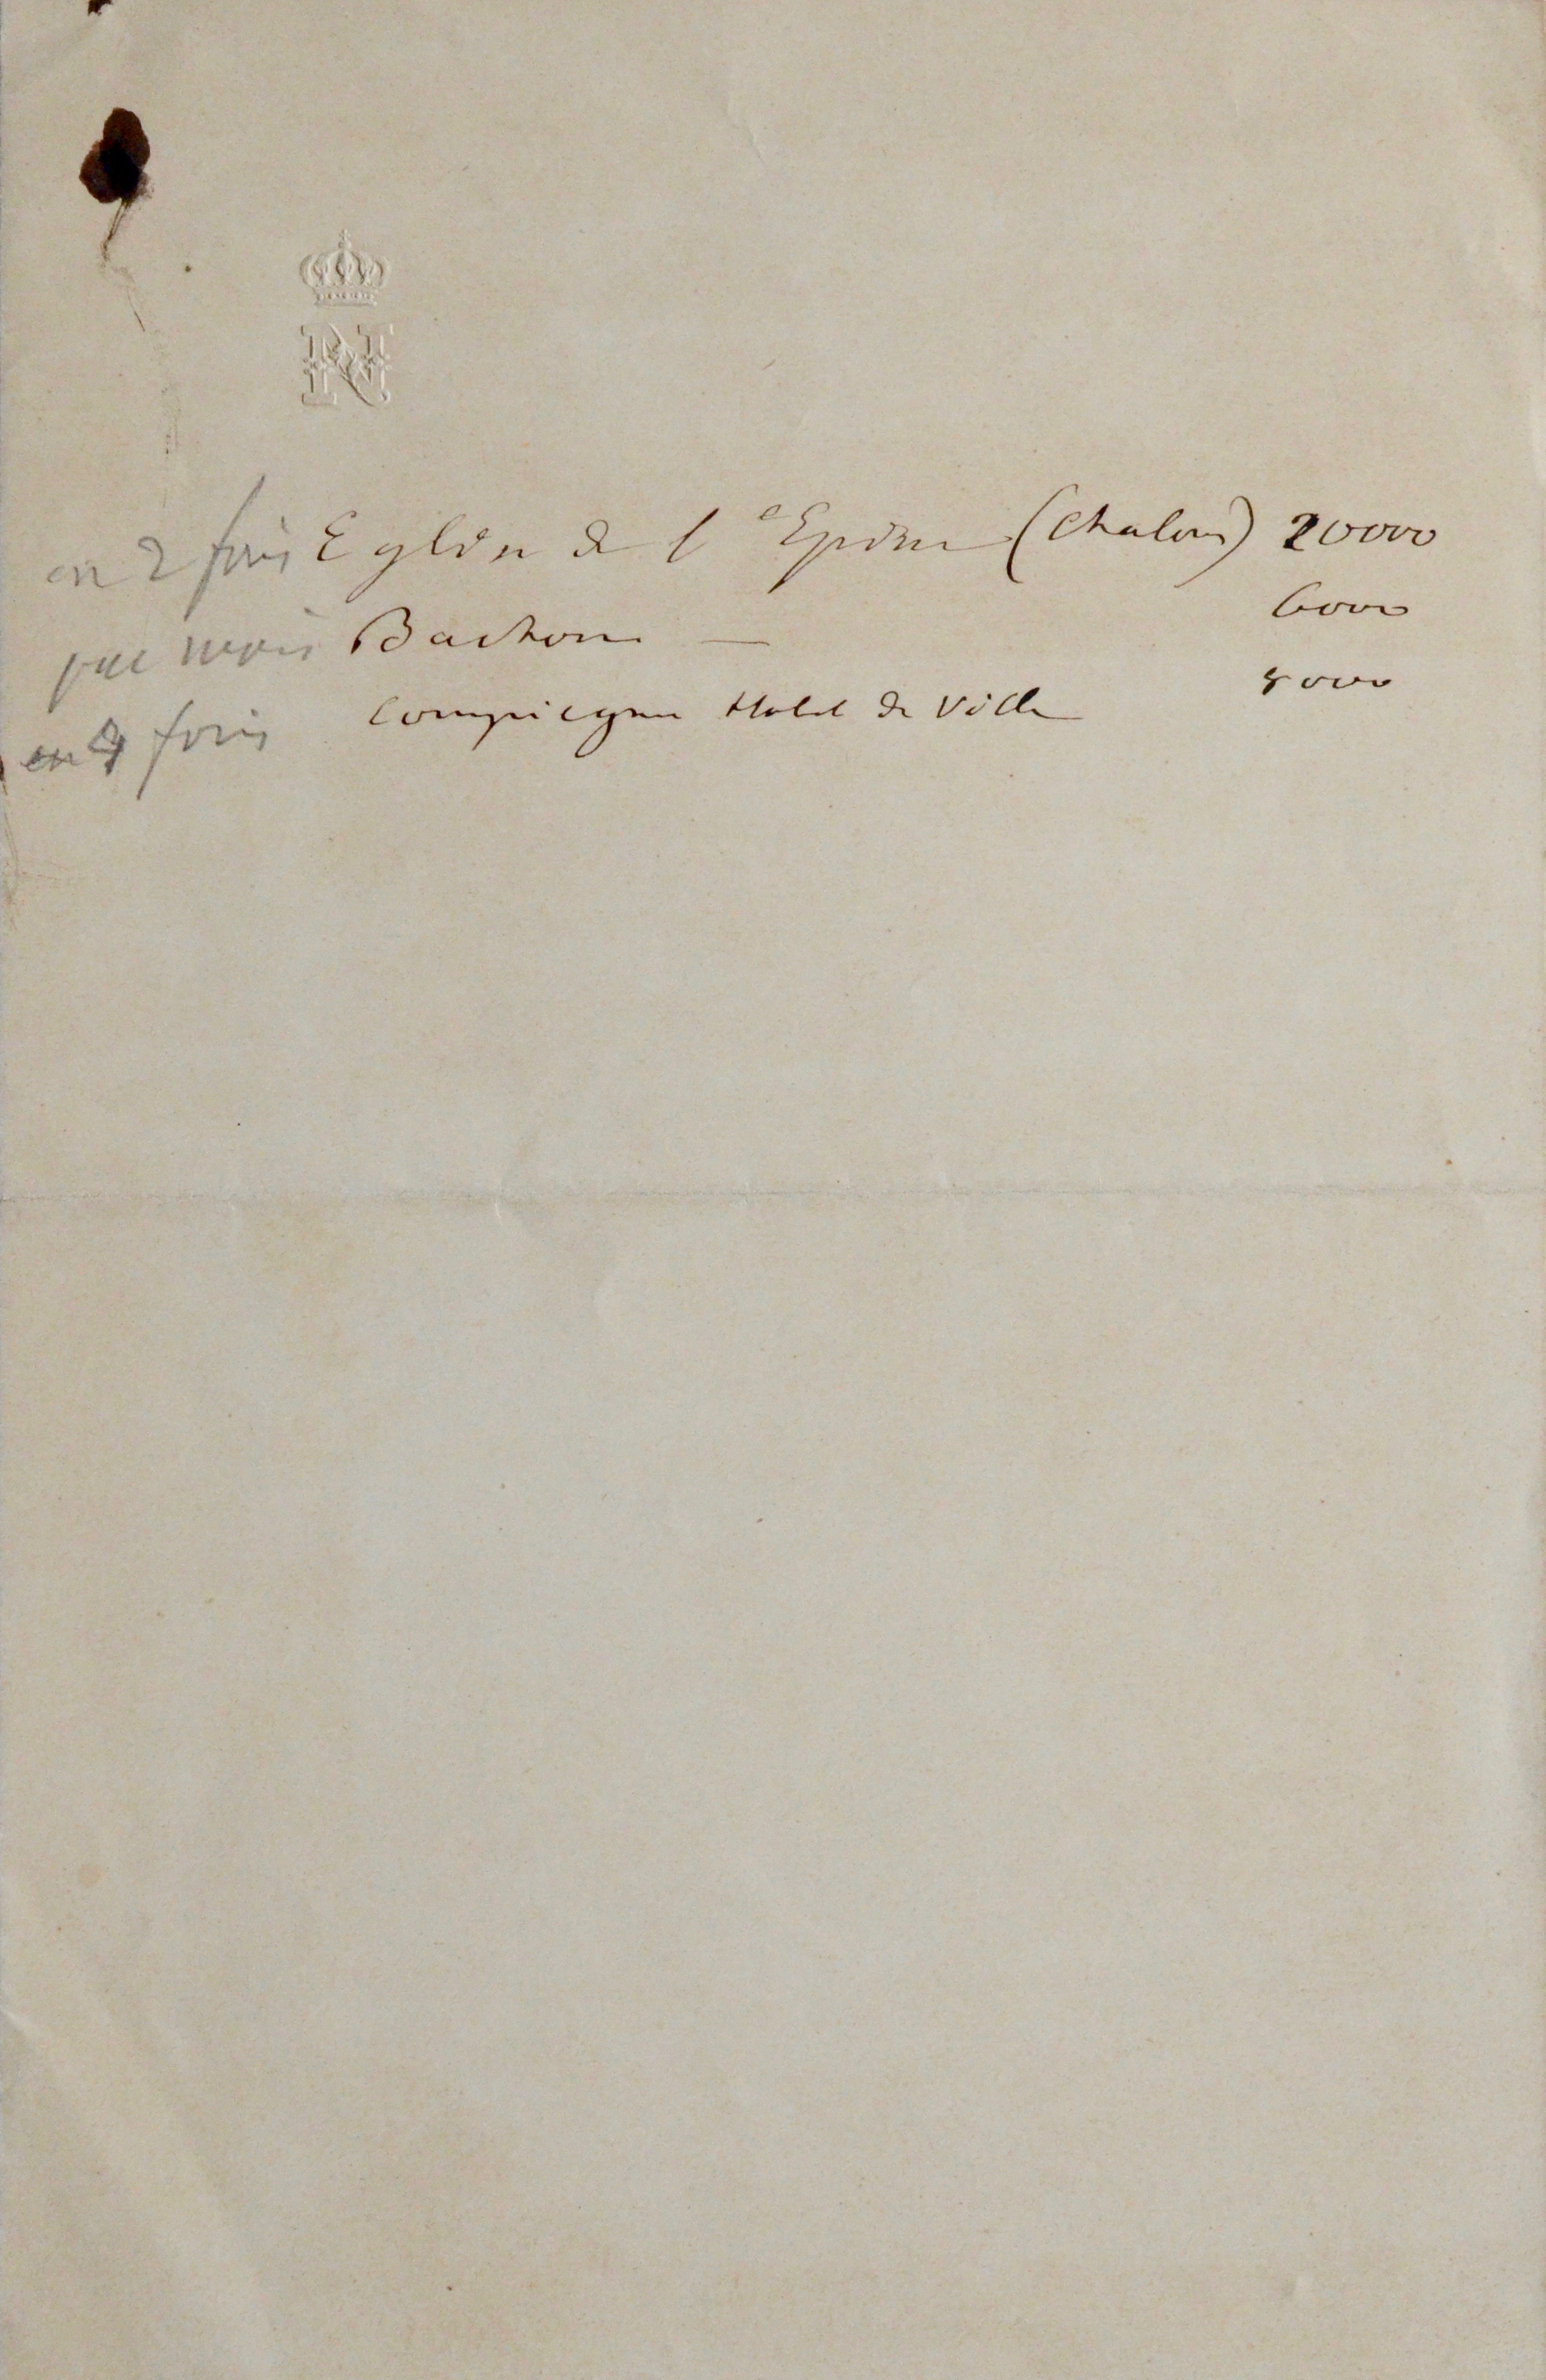 N
en 2 fois Eglise de l'Epine (Chalons) 20000
par mois Bachon — 6000
en 4 fois Compiegne Hotel de Ville 8000